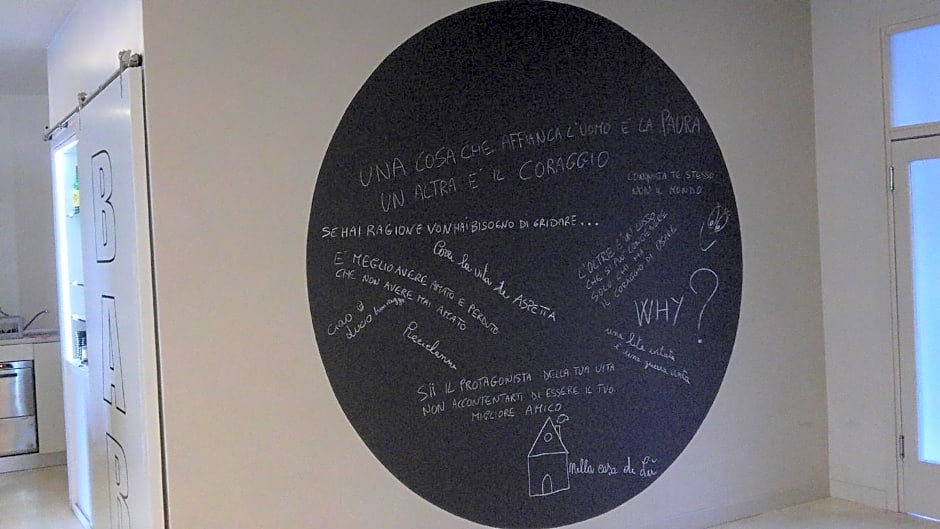 BAR
UNA COSA CHE AFFIANCA L'UOMO E LA PAURA
UN ALTRA E' IL CORAGGIO
CONQUISTA TE STESSO
NON IL MONDO
SE HAI RAGIONE NON HAI BISOGNO DI GRIDARE...
L'OLTRE È UN LUSSO
CHE SI PUÒ CONCEDERE
SOLO CHI HA
IL CORAGGIO DI OSARE
Corri la vita ti ASPETTA
E' MEGLIO AVERE AMATO E PERDUTO
CHE NON AVERE MAI AMATO
CIAO
LUCIO
WHY?
una lite evitata
è una guerra vinta
SII IL PROTAGONISTA DELLA TUA VITA
NON ACCONTENTARTI DI ESSERE IL TUO
MIGLIORE AMICO
nella casa di Lù